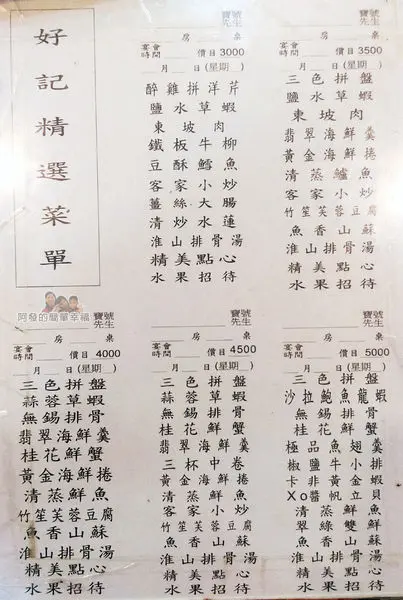 好記精選菜單
寶號
先生
房 桌
宴會
時間
價目3000
月 日(星期 )
醉雞拼洋芹
鹽水草蝦
東坡肉
鐵板牛柳
豆酥鱈魚
客家小炒
薑絲大腸
清炒水蓮
淮山排骨湯
精美點心
水果招待
寶號
先生
房 桌
宴會
時間
價目3500
月 日(星期 )
三色拼盤
鹽水草蝦
東坡肉
翡翠海鮮羹
黃金海鮮捲
清蒸鱸魚
客家小炒
竹笙芙蓉豆腐
魚香山蘇
淮山排骨湯
精美點心
水果招待
阿發的簡單幸福
寶號
先生
房 桌
宴會
時間
價目4000
月 日(星期 )
三色拼盤
蒜蓉草蝦
無錫排骨
翡翠海鮮羹
桂花鮮蟹
黃金海鮮捲
清蒸鮮魚
竹笙芙蓉豆腐
魚香山蘇
淮山排骨湯
精美點心
水果招待
寶號
先生
房 桌
宴會
時間
價目4500
月 日(星期 )
三色拼盤
蒜蓉草蝦
無錫排骨
桂花鮮蟹
翡翠海鮮羹
三杯中卷
黃金海鮮捲
清蒸鮮魚
客家小炒
竹笙芙蓉豆腐
魚香山蘇
淮山排骨湯
精美點心
水果招待
寶號
先生
房 桌
宴會
時間
價目5000
月 日(星期 )
三色拼盤
沙拉鮑魚龍蝦
無錫排骨
桂花鮮蟹
極品魚翅羹
椒鹽牛小排
卡非黃金蝦
Xo醬帆立貝
清蒸鮮魚
翠綠雙鮮
魚香山蘇
淮山排骨湯
精美點心
水果招待